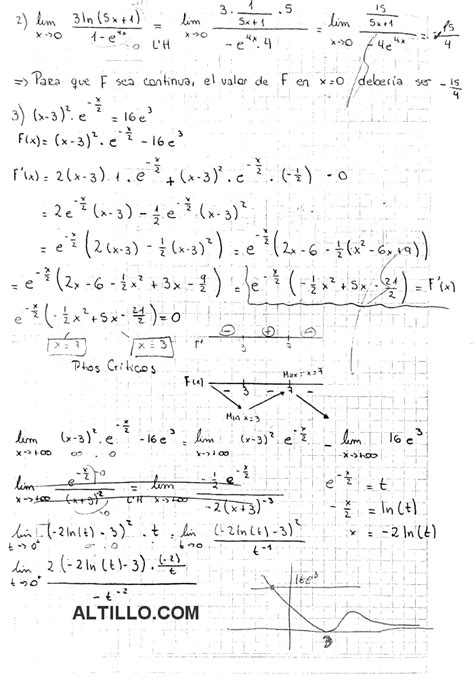 2) lim x→0 3ln(5x+1) / 1-e^4x = L'H lim x→0 3 · 1/5x+1 · 5 / -e^4x · 4 = lim x→0 15/5x+1 / -4e^4x =
=> Para que F sea continua, el valor de F en x=0 debería ser -15/4
3) (x-3)² · e^-x/2 = 16e³
F(x) = (x-3)² · e^-x/2 - 16e³
F'(x) = 2(x-3) · 1 · e^-x/2 + (x-3)² · e^-x/2 · (-1/2) - 0
= 2e^-x/2 (x-3) - 1/2 e^-x/2 (x-3)²
= e^-x/2 (2(x-3) - 1/2 (x-3)²) = e^-x/2 (2x - 6 - 1/2 (x² - 6x + 9))
= e^-x/2 (2x - 6 - 1/2 x² + 3x - 9/2) = e^-x/2 (-1/2 x² + 5x - 21/2) = F'(x)
e^-x/2 (-1/2 x² + 5x - 21/2) = 0
x=7 x=3 F' - + - 3 7
Ptos Críticos
Max=x=7
F(x) - 3 - 7 -
Min x=3
lim x→+∞ (x-3)² · e^-x/2 - 16e³ = lim x→+∞ (x-3)² e^-x/2 - lim x→+∞ 16e³
lim x→+∞ e^-x/2 / (x+3)² = L'H lim x→+∞ -1/2 e^-x/2 / -2(x+3)^-3
e^-x/2 = t
-x/2 = ln(t)
x = -2ln(t)
lim t→0⁺ (-2ln(t) - 3)² · t = lim t→0 (-2ln(t) - 3)² / t^-1
lim t→0⁺ 2(-2ln(t) - 3) · (-2)/t / -t^-2
16e³
3
ALTILLO.COM